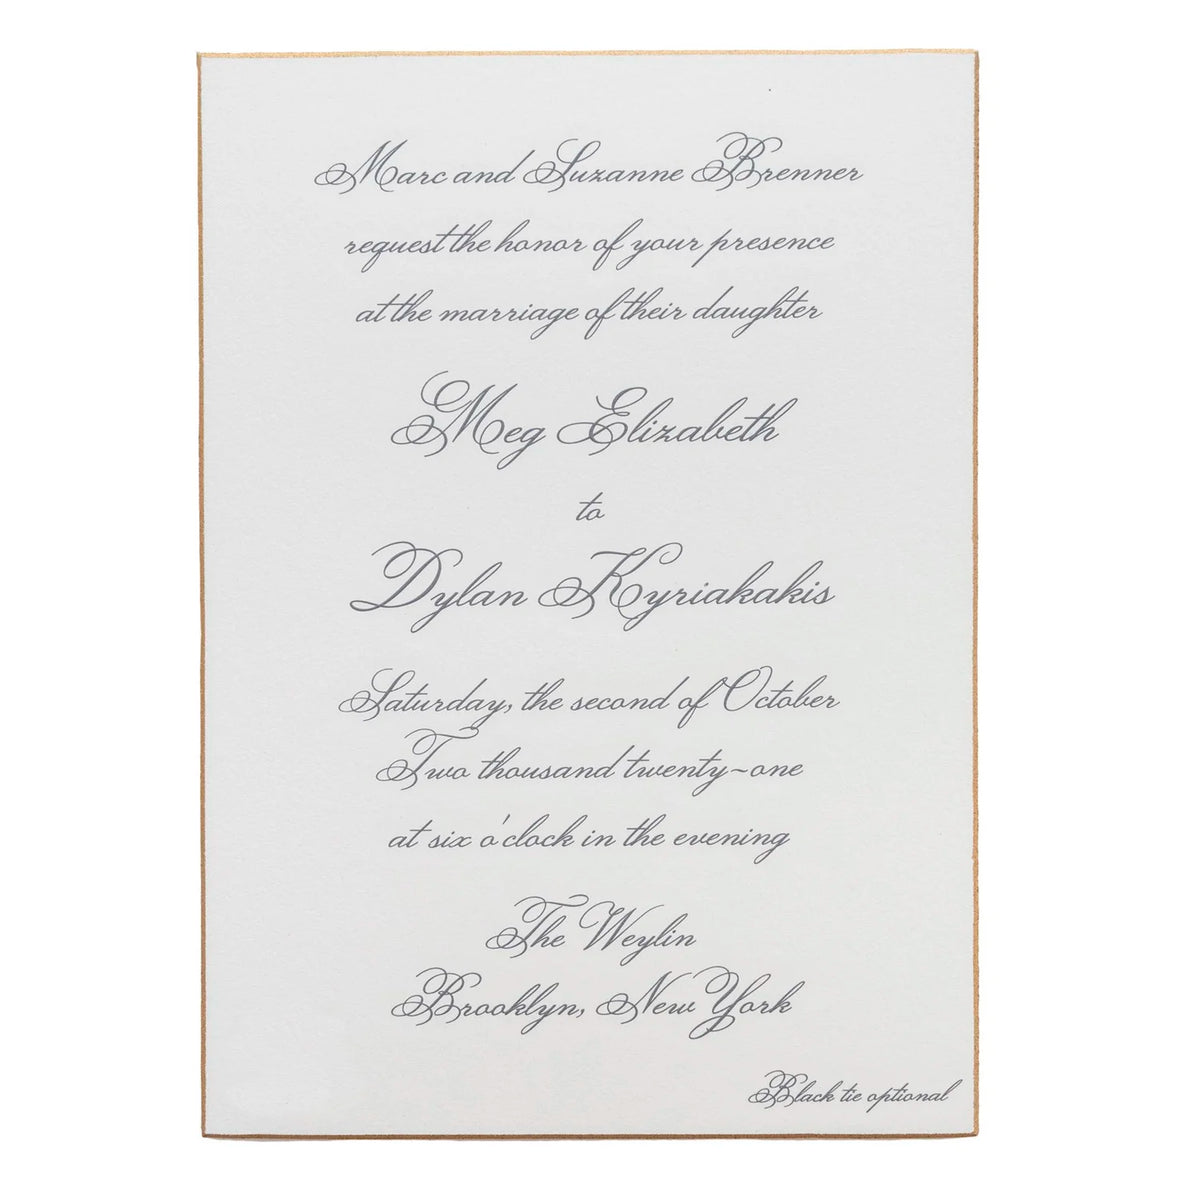 Marc and Suzanne Brenner
request the honor of your presence
at the marriage of their daughter
Meg Elizabeth
to
Dylan Kyriakakis
Saturday, the second of October
Two thousand twenty~one
at six o'clock in the evening
The Weylin
Brooklyn, New York
Black tie optional